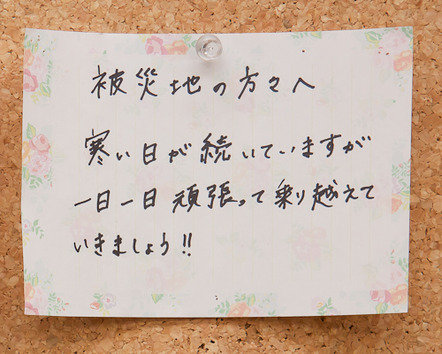 被災地の方々へ
寒い日が続いていますが
一日一日頑張って乗り越えて
いきましょう!!